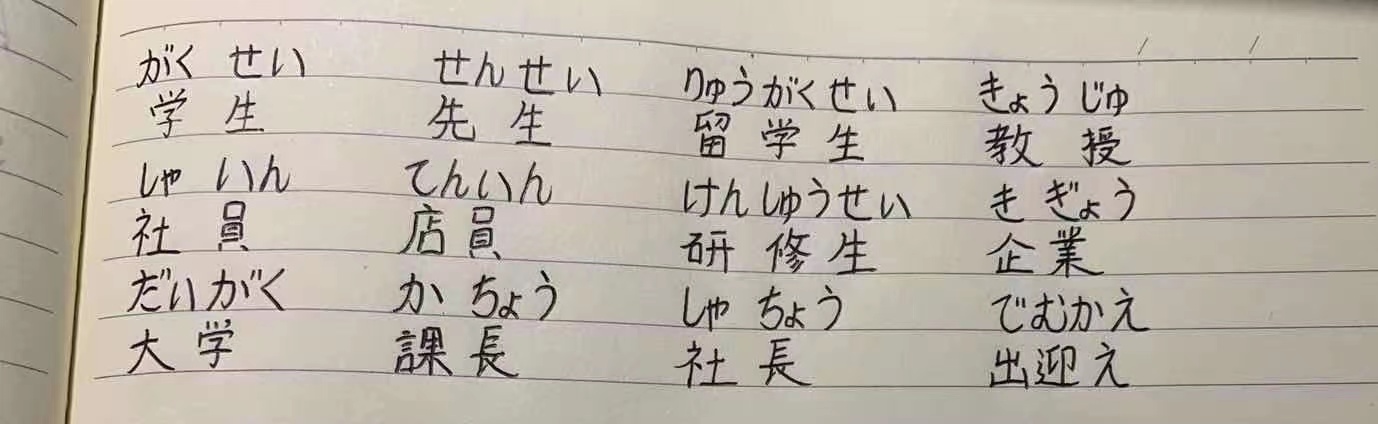 がくせい せんせい りゅうがくせい きょうじゅ
学生 先生 留学生 教授
しゃいん てんいん けんしゅうせい きぎょう
社員 店員 研修生 企業
だいがく かちょう しゃちょう でむかえ
大学 課長 社長 出迎え